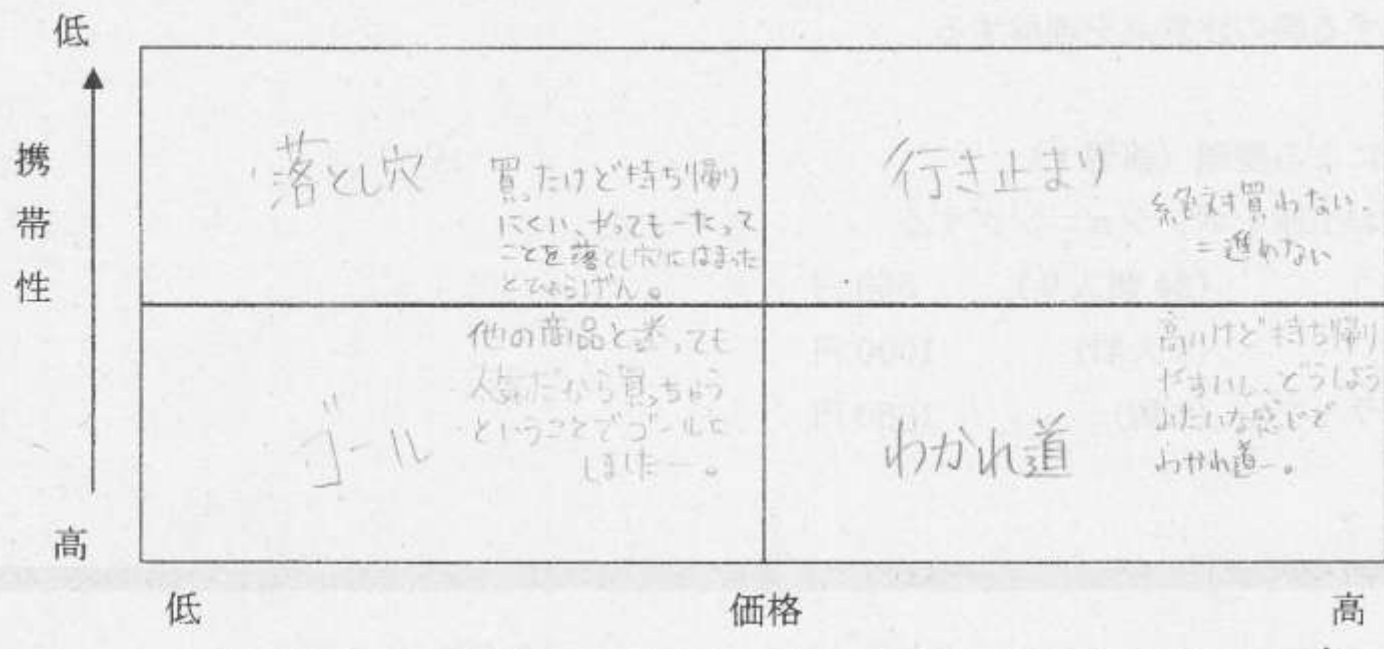 低
携
帯
性
高
落とし穴
買ったけど持ち帰り
にくい、やってもーたって
ことを落とし穴にはまった
とひょうげん。
行き止まり
絶対買わない。
=進めない
ゴール
他の商品と迷っても
人気だから買っちゃう
ということでゴールに
しましたー。
わかれ道
高いけど持ち帰り
やすいし、どうしよう
みたいな感じで
わかれ道ー。
低
価格
高